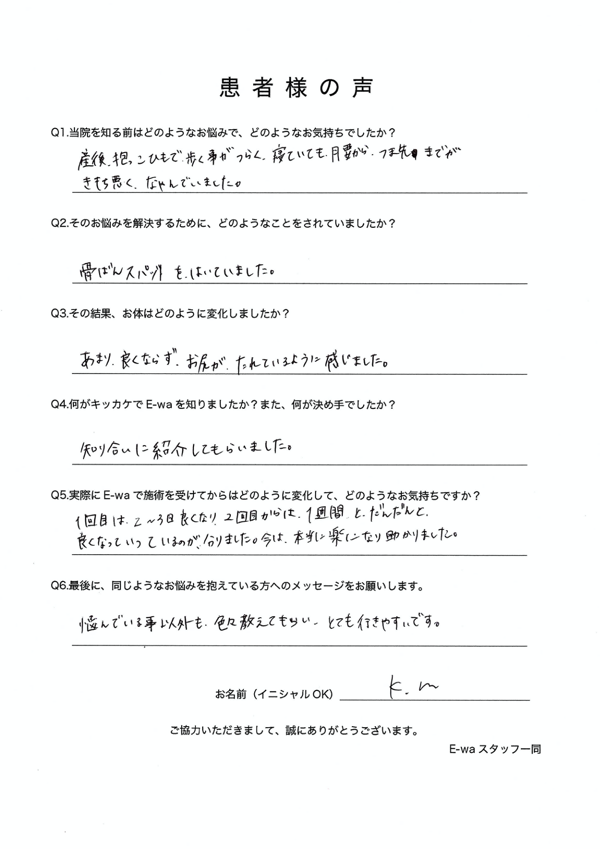 患者様の声
Q1.当院を知る前はどのようなお悩みで、どのようなお気持ちでしたか？
産後、抱っこひもで歩く事がつらく、寝ていても、月要から、つま先までが
きもち悪く、なやんでいました。
Q2.そのお悩みを解決するために、どのようなことをされていましたか？
骨ばんスパッツを、はいていました。
Q3.その結果、お体はどのように変化しましたか？
あまり、良くならず、お尻が、たれているように感じました。
Q4.何がキッカケでE-waを知りましたか？また、何が決め手でしたか？
知り合いに紹介してもらいました。
Q5.実際にE-waで施術を受けてからはどのように変化して、どのようなお気持ちですか？
1回目は、2～3日良くなり、2回目からは、1週間と、だんだんと、
良くなっていっているのが、分りました。今は、本当に楽になり助かりました。
Q6.最後に、同じようなお悩みを抱えている方へのメッセージをお願いします。
悩んでいる事以外も、色々教えてもらい、とても行きやすいです。
お名前（イニシャルOK） K.M
ご協力いただきまして、誠にありがとうございます。
E-waスタッフ一同